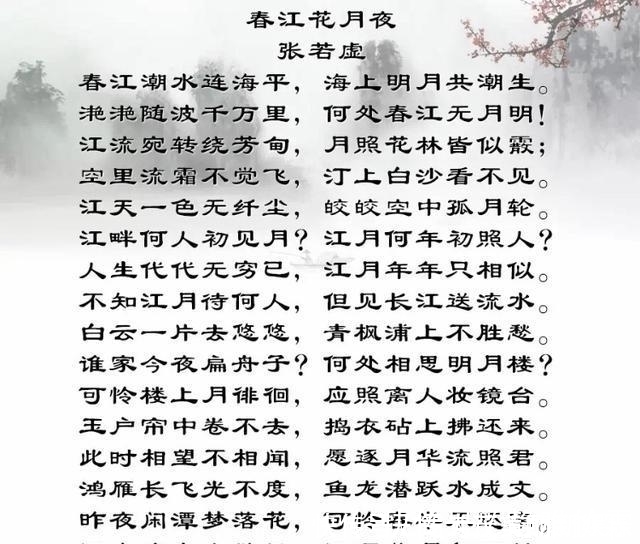 春江花月夜
张若虚
春江潮水连海平，海上明月共潮生。
滟滟随波千万里，何处春江无月明！
江流宛转绕芳甸，月照花林皆似霰；
空里流霜不觉飞，汀上白沙看不见。
江天一色无纤尘，皎皎空中孤月轮。
江畔何人初见月？江月何年初照人？
人生代代无穷已，江月年年只相似。
不知江月待何人，但见长江送流水。
白云一片去悠悠，青枫浦上不胜愁。
谁家今夜扁舟子？何处相思明月楼？
可怜楼上月徘徊，应照离人妆镜台。
玉户帘中卷不去，捣衣砧上拂还来。
此时相望不相闻，愿逐月华流照君。
鸿雁长飞光不度，鱼龙潜跃水成文。
昨夜闲潭梦落花，